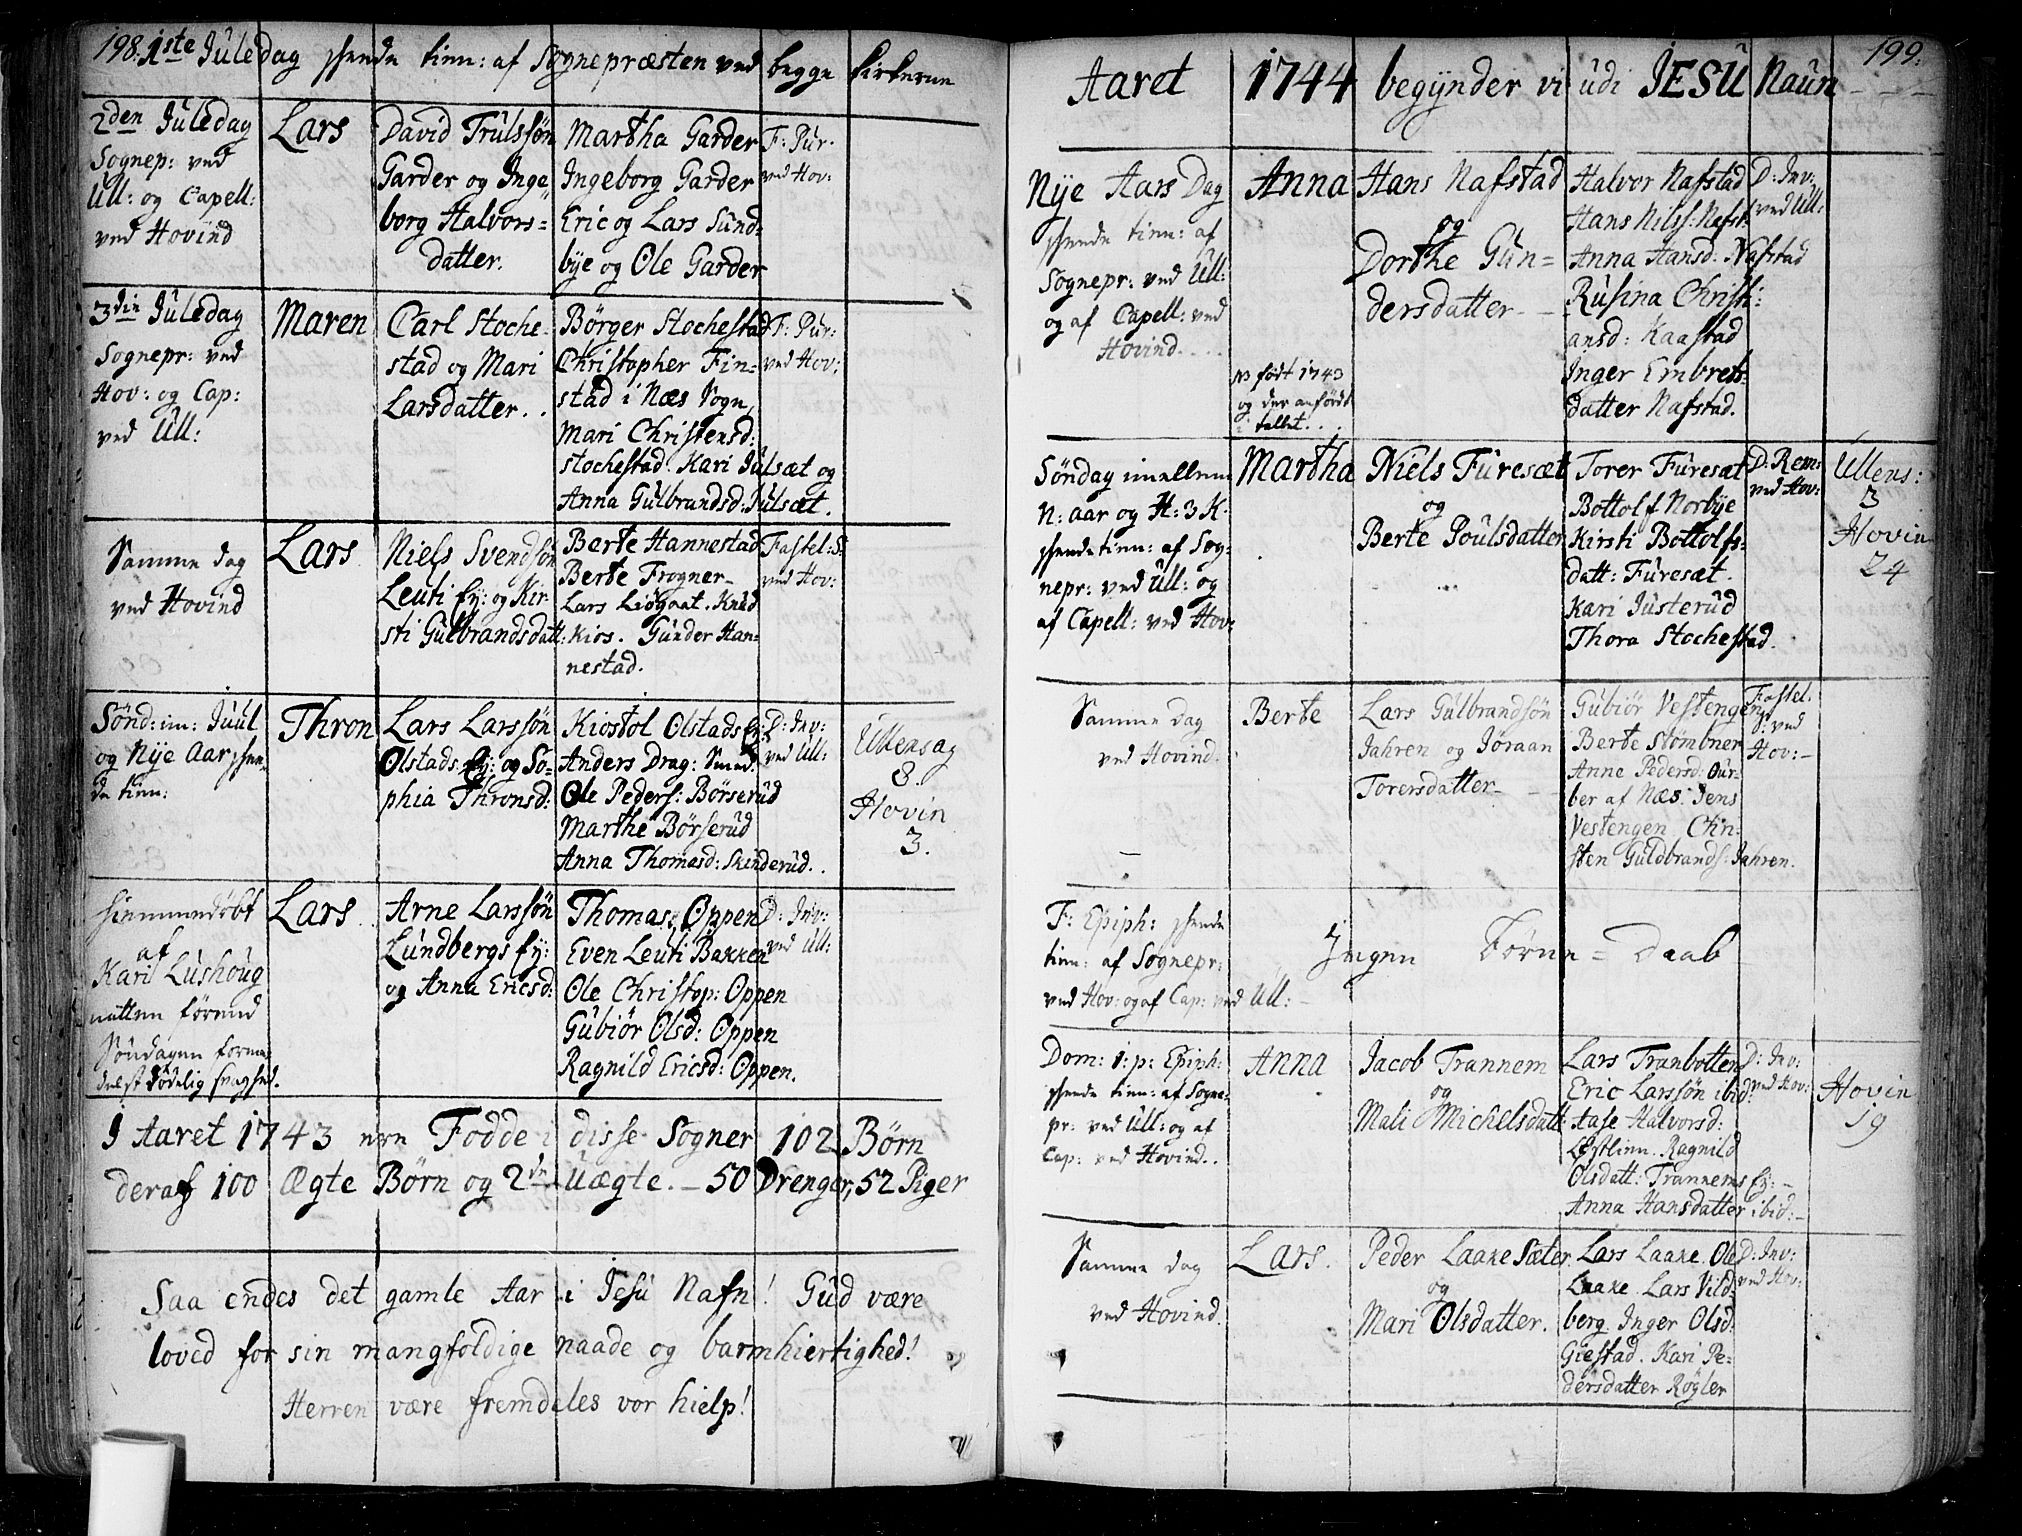 198. 1ste Juledag skeede tien: af Sognepræsten ved begge kirkerne
2den Juledag
Sognep: ved
Ull: og Capell:
ved Hovind
Lars
David Trulssøn
Garder og Inge
borg Halvors=
datter.
Martha Garder
Ingeborg Garder
Eric og Lars Sund=
bye og Ole Garder
F: Pur.
ved Hov:
3die Juledag
Sognepr: ved
Hov: og Cap:
ved Ull:
Maren
Carl Stoche
stad og Mari
Larsdatter.
Børger Stochestad
Christopher Fin=
stad i Næs Sogn,
Mari Christensd:
Stochestad. Kari Julsæt og
Anna Gulbrandsd: Julsæt.
F: Pur:
ved Hov:
Samme dag
ved Hovind
Lars
Niels Svendsøn
Leuti Ey: og Kir
sti Gulbrandsdatt:
Berte Hannestad
Berte Frogner
Lars Liøgoat. Knud
Kios. Gunder Han=
nestad.
Fastel: S.
ved Hov:
Sønd: im: Juul
og Nye Aar skee
de tien:
Thron
Lars Larssøn
Olstads Ey: og So=
phia Thronsd:
Kiostol Olstads Ey:
Anders Drag: Smed.
Ole Peders: Børserud
Marthe Børserud
Anna Thomasd: Skinderud.
D: Inv:
ved Ull:
Ullensag
8.
Hovin
3.
Hiemmedøbt
af
Kari Lushoug
natten førend
Søndagen forme
delst dødelig svaghed.
Lars
Arne Larssøn
Lundbergs Ey:
og Anna Ericsd:
Thomas Oppen
Even Leuti Bakken
Ole Christop: Oppen
Gubiør Olsd: Oppen
Ragnild Ericsd: Oppen.
D: Inv:
ved Ull:
I Aaret 1743 ere Fødde i disse Sogner 102 Børn
deraf 100 Ægte Børn og 2de Uægte. – 50 Drenger, 52 Piger
Saa endes det gamle Aar i Jesu Nafn! Gud være
loved for sin mangfoldige naade og barmhiertighed!
Herren være fremdeles vor hielp!
199.
Aaret 1744 begynder vi udi JESU Naun
Nye Aars Dag
skeede tien: af
Sognepr: ved Ull:
og af Capell: ved
Hovind.
Anna
NB født 1743
og der anført
i tallet.
Hans Nafstad
og
Dorthe Gun=
dersdatter
Halvor Nafstad
Hans Nilss: Nafst:
Anna Hansd: Nafstad
Rusina Christi=
ansd: Kaastad
Inger Embrets=
datter Nafstad.
D: Inv:
ved Ull:
Søndag imellem
N: aar og H: 3 K.
skeede tien: af Sog=
nepr: ved Ull: og
af Capell: ved Hov:
Martha
Niels Furesæt
og
Berte Poulsdatter
Torer Furesæt
Bottolf Norbye
Kirsti Bottolfs=
datt: Furesæt.
Kari Justerud
Thora Stochestad.
D: Rem:
ved Hov:
Ullens:
3
Hovin
24
Samme dag
ved Hovind.
Berte
Lars Gulbrandsøn
Jahren og Joraan
Torersdatter
Gubiør Vestengen
Berte Stømbner
Anne Pedersd: Our=
ber af Næs. Jens
Vestengen. Chri=
sten Guldbrands: Jahren.
Fastel.
S: ved
Hov:
F: Epiph: skeede
tien: af Sognepr:
ved Hov: og af Cap: ved Ull:
Ingen Børne=Daab
Dom: 1: p: Epiph:
skeede tien: af Sogne=
pr: ved Ull: og af
Cap: ved Hovind.
Anna
Jacob Trannem
og
Mali Michelsdatt:
Lars Tranbotten
Eric Larssøn ibid:
Aase Halvorsd:
Ragnild
Olsdatt: Trannems Ey:
Anna Hansdatter ibid:
D: Inv:
ved Hov:
Hovin
19
Samme dag
ved Hovind.
Lars.
Peder Laake Sæter
og
Mari Olsdatter.
Lars Laake. Ole
Laake. Lars Vild=
berg. Inger Olsd:
Giestad. Kari Pe=
dersdatter Røgler
D: Inv:
ved Hov: